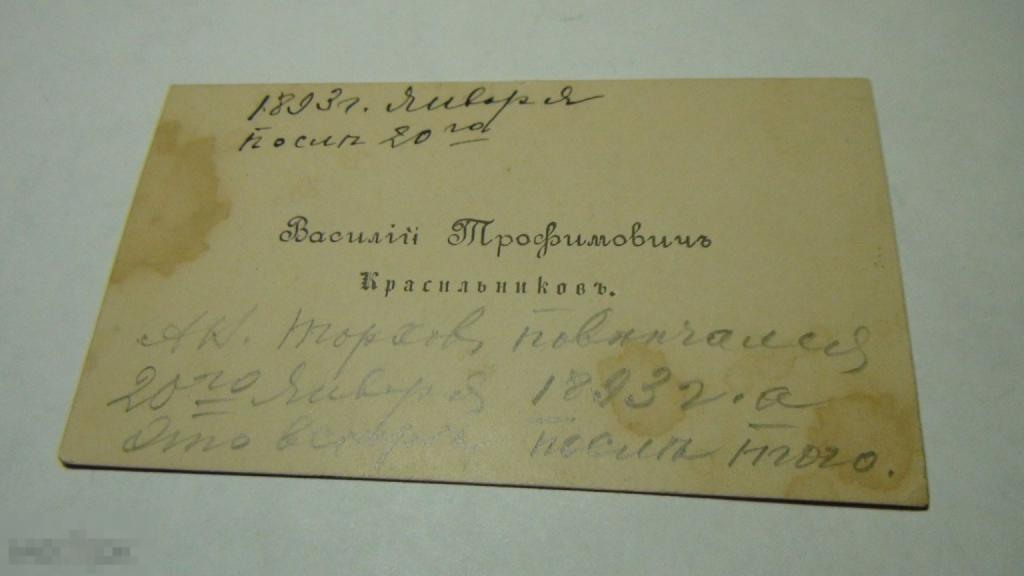 1893 г. Января
послѣ 20 го
Василій Трофимовичъ
Красильниковъ.
Ак. Торхов, повѣнчался
20 го Января 1893 г. а
Это послѣ того.